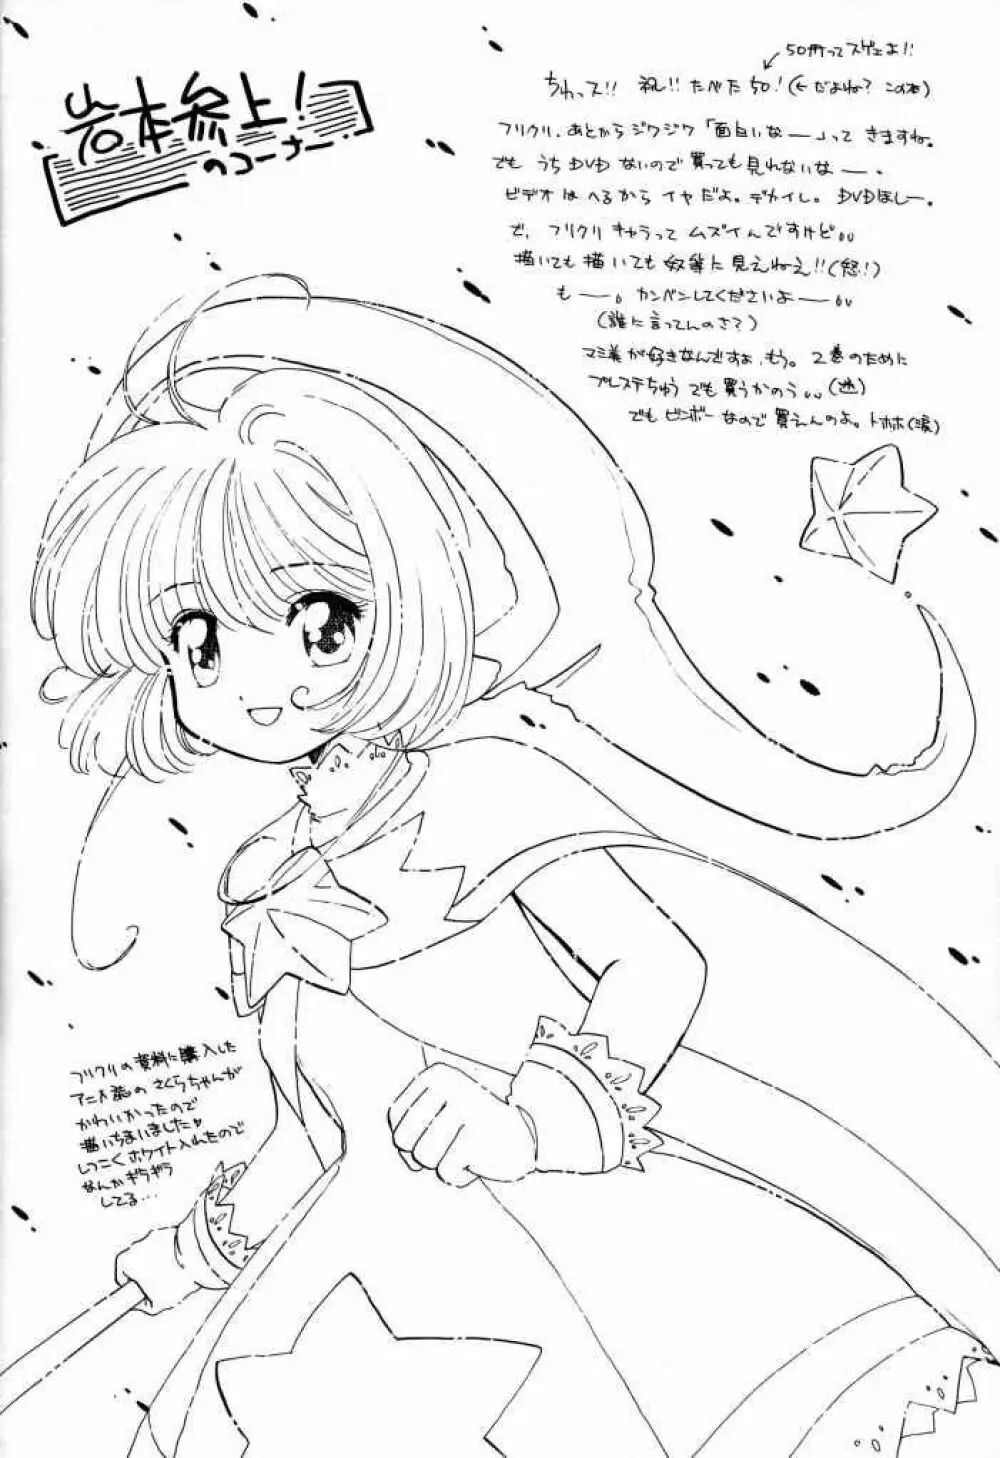 岩本参上!
のコーナー
50冊ってスゲェよ!!
ちわっス!! 祝!! たべた50!(←だよね? この本)
フリクリ、あとからジワジワ「面白いなー」って きますね。
でも うち DVD ないので 買っても 見れないなー。
ビデオは へるから イヤだよ。デカイし。DVDほしー。
で、フリクリ キャラって ムズイんですけど。。
描いても 描いても 奴等に 見えねえ!!(怒!)
もー。カンベンしてくださいよー。。
(誰に言ってんのさ?)
マミ美が好きなんですよ、もう。2巻のために
プレステちゅうでも買うかのう。。(迷)
でも ビンボーなので 買えんのよ。トホホ(涙)
フリクリの資料に購入した
アニメ誌の さくらちゃんが
かわいかったので
描いちまいました
しつこくホワイト入れたので
なんかギラギラ
してる...